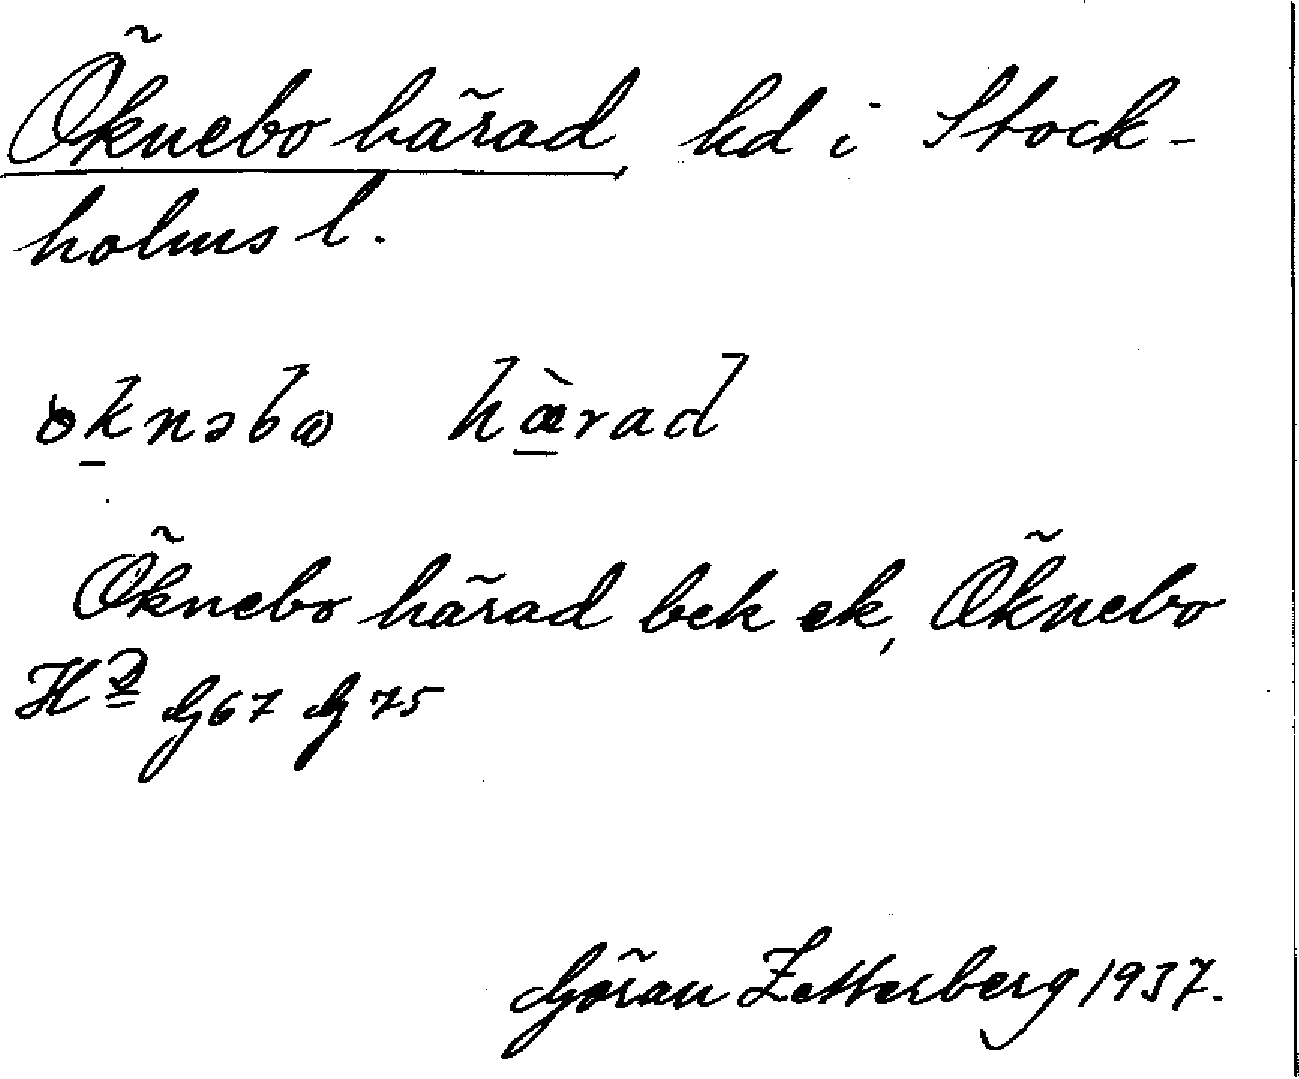 Öknebo härad, hd i Stock-
holms l.
öknəbω hæ̀rad
Öknebo härad bek ek, Öknebo
Hd G67 G75
Göran Zetterberg 1937.